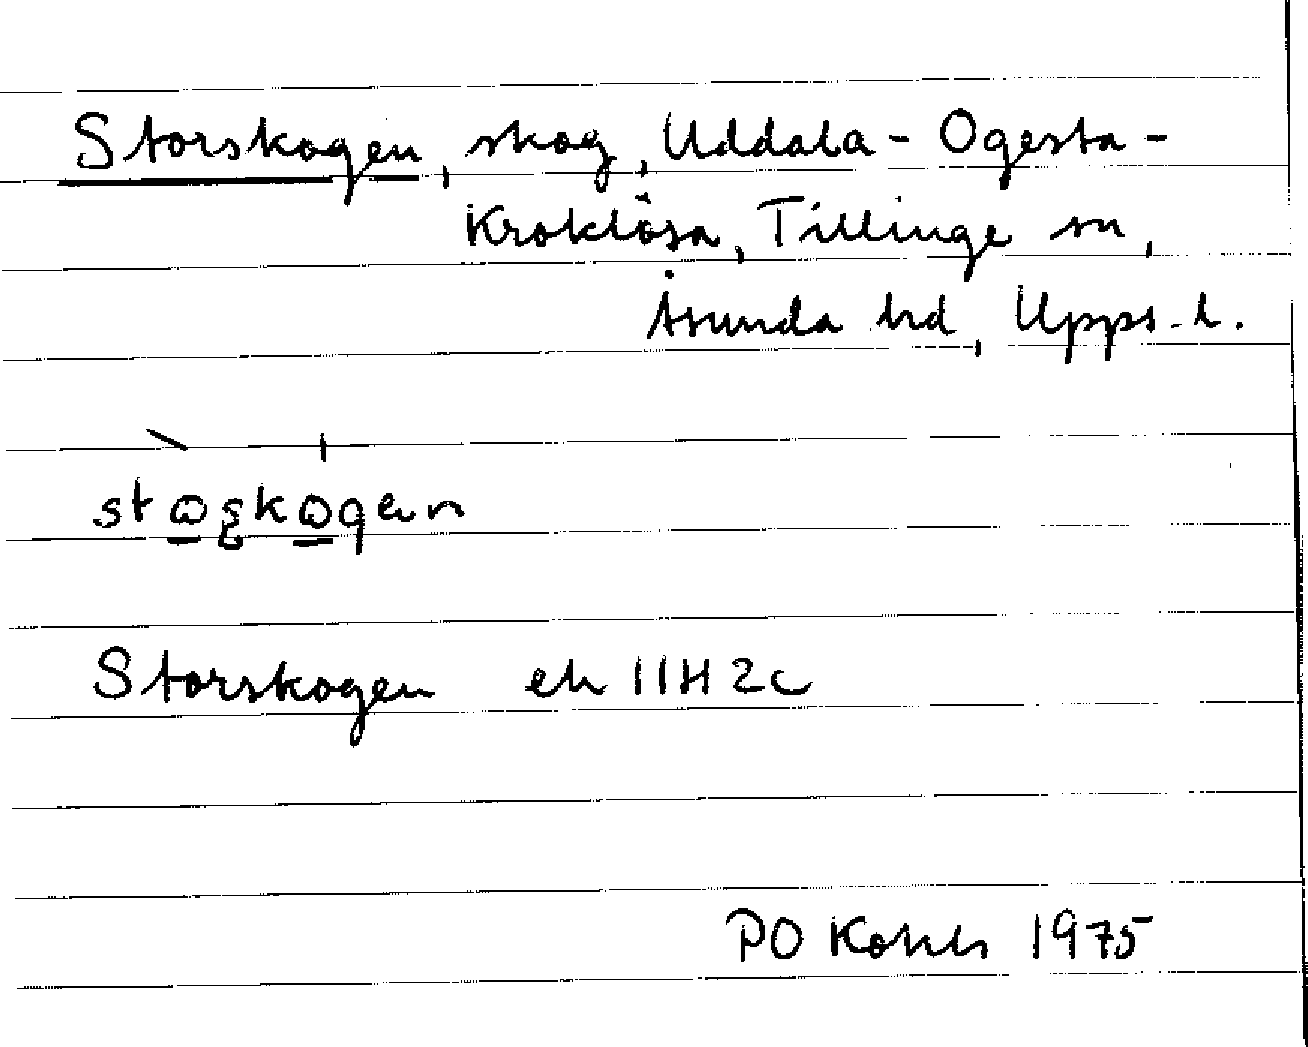 Storskogen, skog, Uddala - Ogesta -
Kroklösa, Tillinge sn,
Åsunda hd, Upps. l.
Storskogen ek 11H 2c
PO 1975